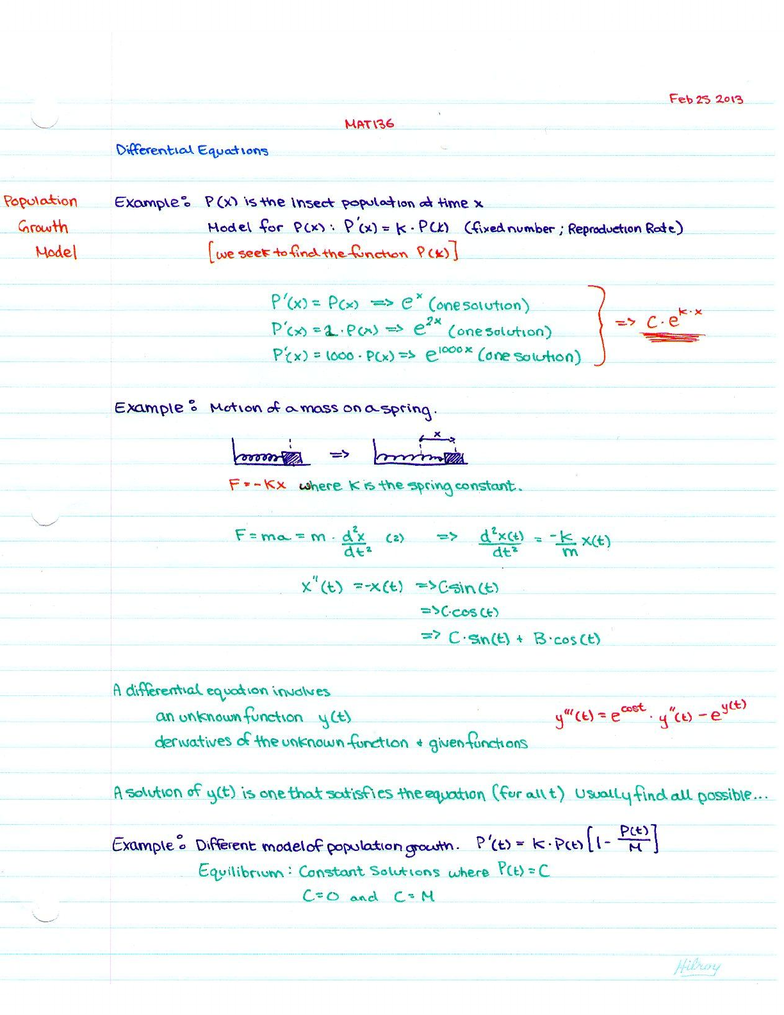 Feb 25 2013
MAT136
Differential Equations
Population
Growth
Model
Example: P(x) is the insect population at time x
Model for P(x): P'(x) = K · P(x) (fixed number; Reproduction Rate)
[we seek to find the function P(x)]
P'(x) = P(x) => e^x (one solution)
P'(x) = 2 · P(x) => e^2x (one solution)
P'(x) = 1000 · P(x) => e^1000x (one solution)
=> C · e^k·x
Example: Motion of a mass on a spring.
=>
x
F = -Kx where K is the spring constant.
F = ma = m · d²x/dt² (2) => d²x(t)/dt² = -k/m x(t)
x''(t) = -x(t) => C·sin(t)
=> C·cos(t)
=> C·sin(t) + B·cos(t)
A differential equation involves
an unknown function y(t)
derivatives of the unknown function + given functions
y'''(t) = e^cost · y''(t) - e^y(t)
A solution of y(t) is one that satisfies the equation (for all t) Usually find all possible...
Example: Different model of population growth. P'(t) = K · P(t) [1 - P(t)/M]
Equilibrium: Constant Solutions where P(t) = C
C=0 and C=M
Hilroy